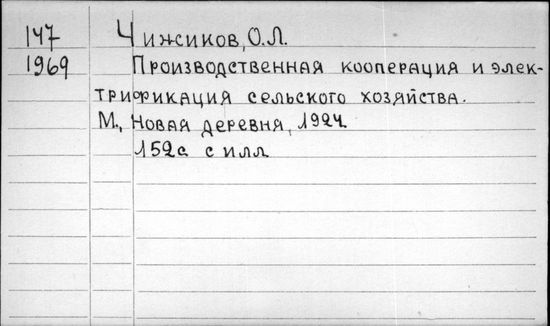 147 Чижиков, О.Л.
1969 Производственная кооперация и элек-
трификация сельского хозяйства.
М., Новая деревня, 1924
152с с илл